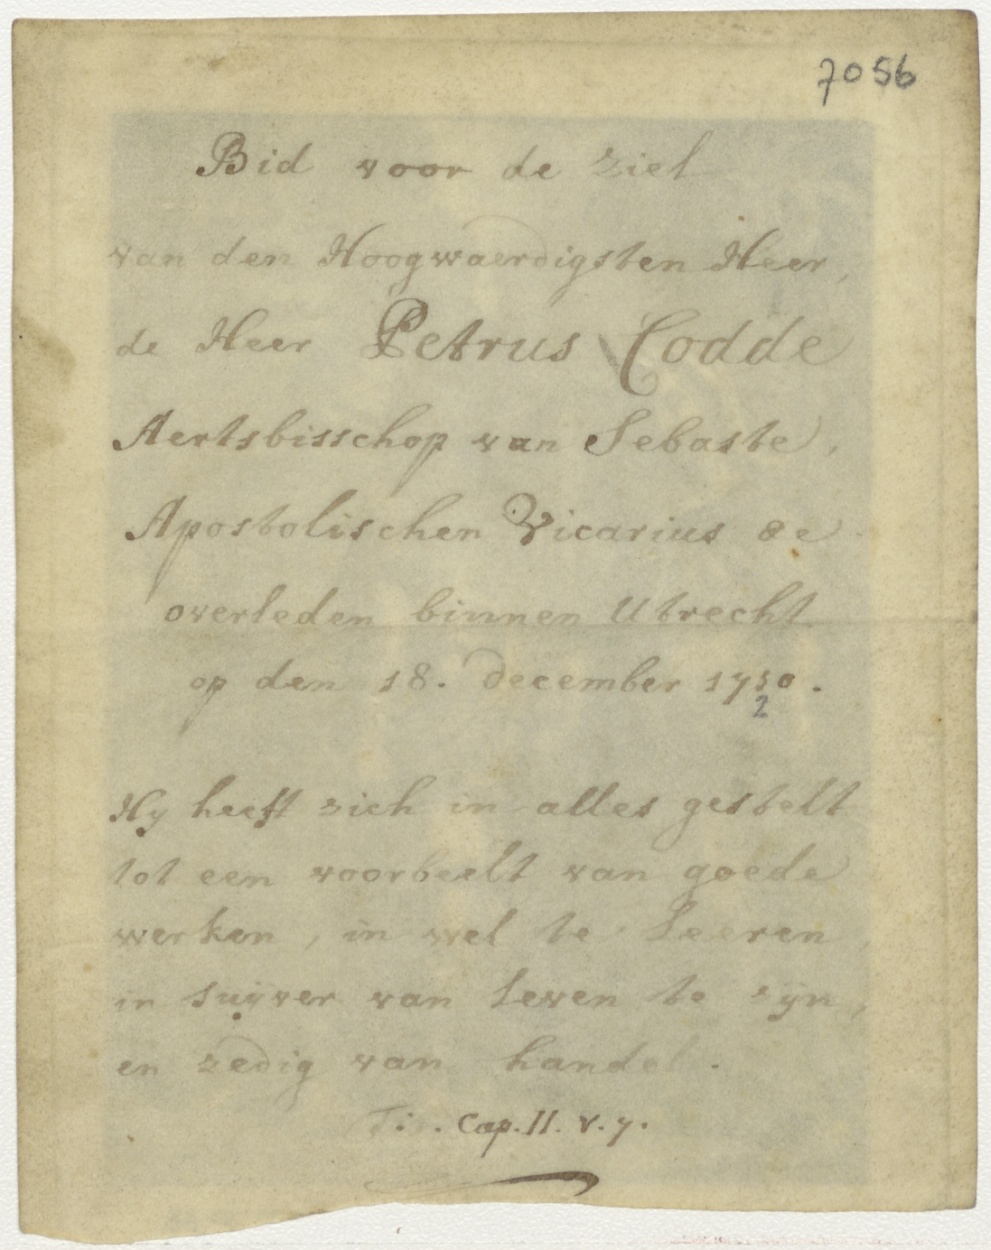 7056
Bid voor de ziel
van den Hoogwaerdigsten Heer,
de Heer Petrus Codde
Aertsbisschop van Sebaste,
Apostolischen Vicarius &c
overleden binnen Utrecht
op den 18. december 1710.
2
Hy heeft zich in alles gestelt
tot een voorbeelt van goede
werken, in wel te Leeren
in suÿver van Leven te zÿn,
en zedig van handel.
Ti. . Cap. II. v. 7.